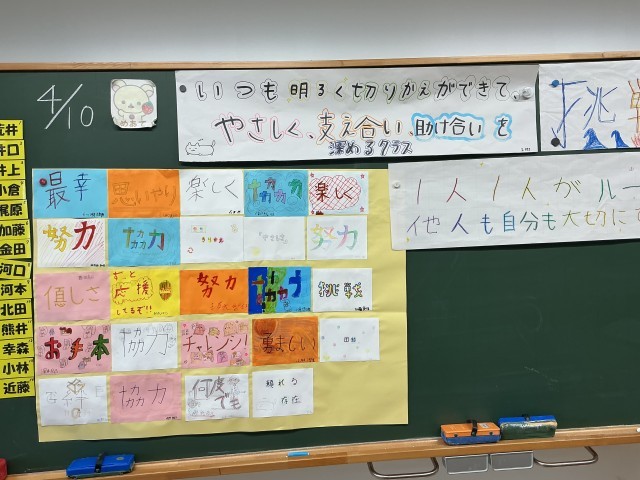 4/10
めあて
いつも明るく切りかえができて、
やさしく、支え合い、助け合いを
深めるクラス
挑戦
1人1人がルー
他人も自分も大切に
荒井
井口
井上
小倉
梶原
加藤
金田
河口
河本
北田
熊井
幸森
小林
近藤
最幸
思いやり
楽しく
協力
楽しく
努力
協力
きりかえ
努力
優しさ
ずっと
応援
してるぞ!!
努力
協力
挑戦
お手本
協力
チャレンジ!
励ましい
協力
何度
でも
頼れる
存在